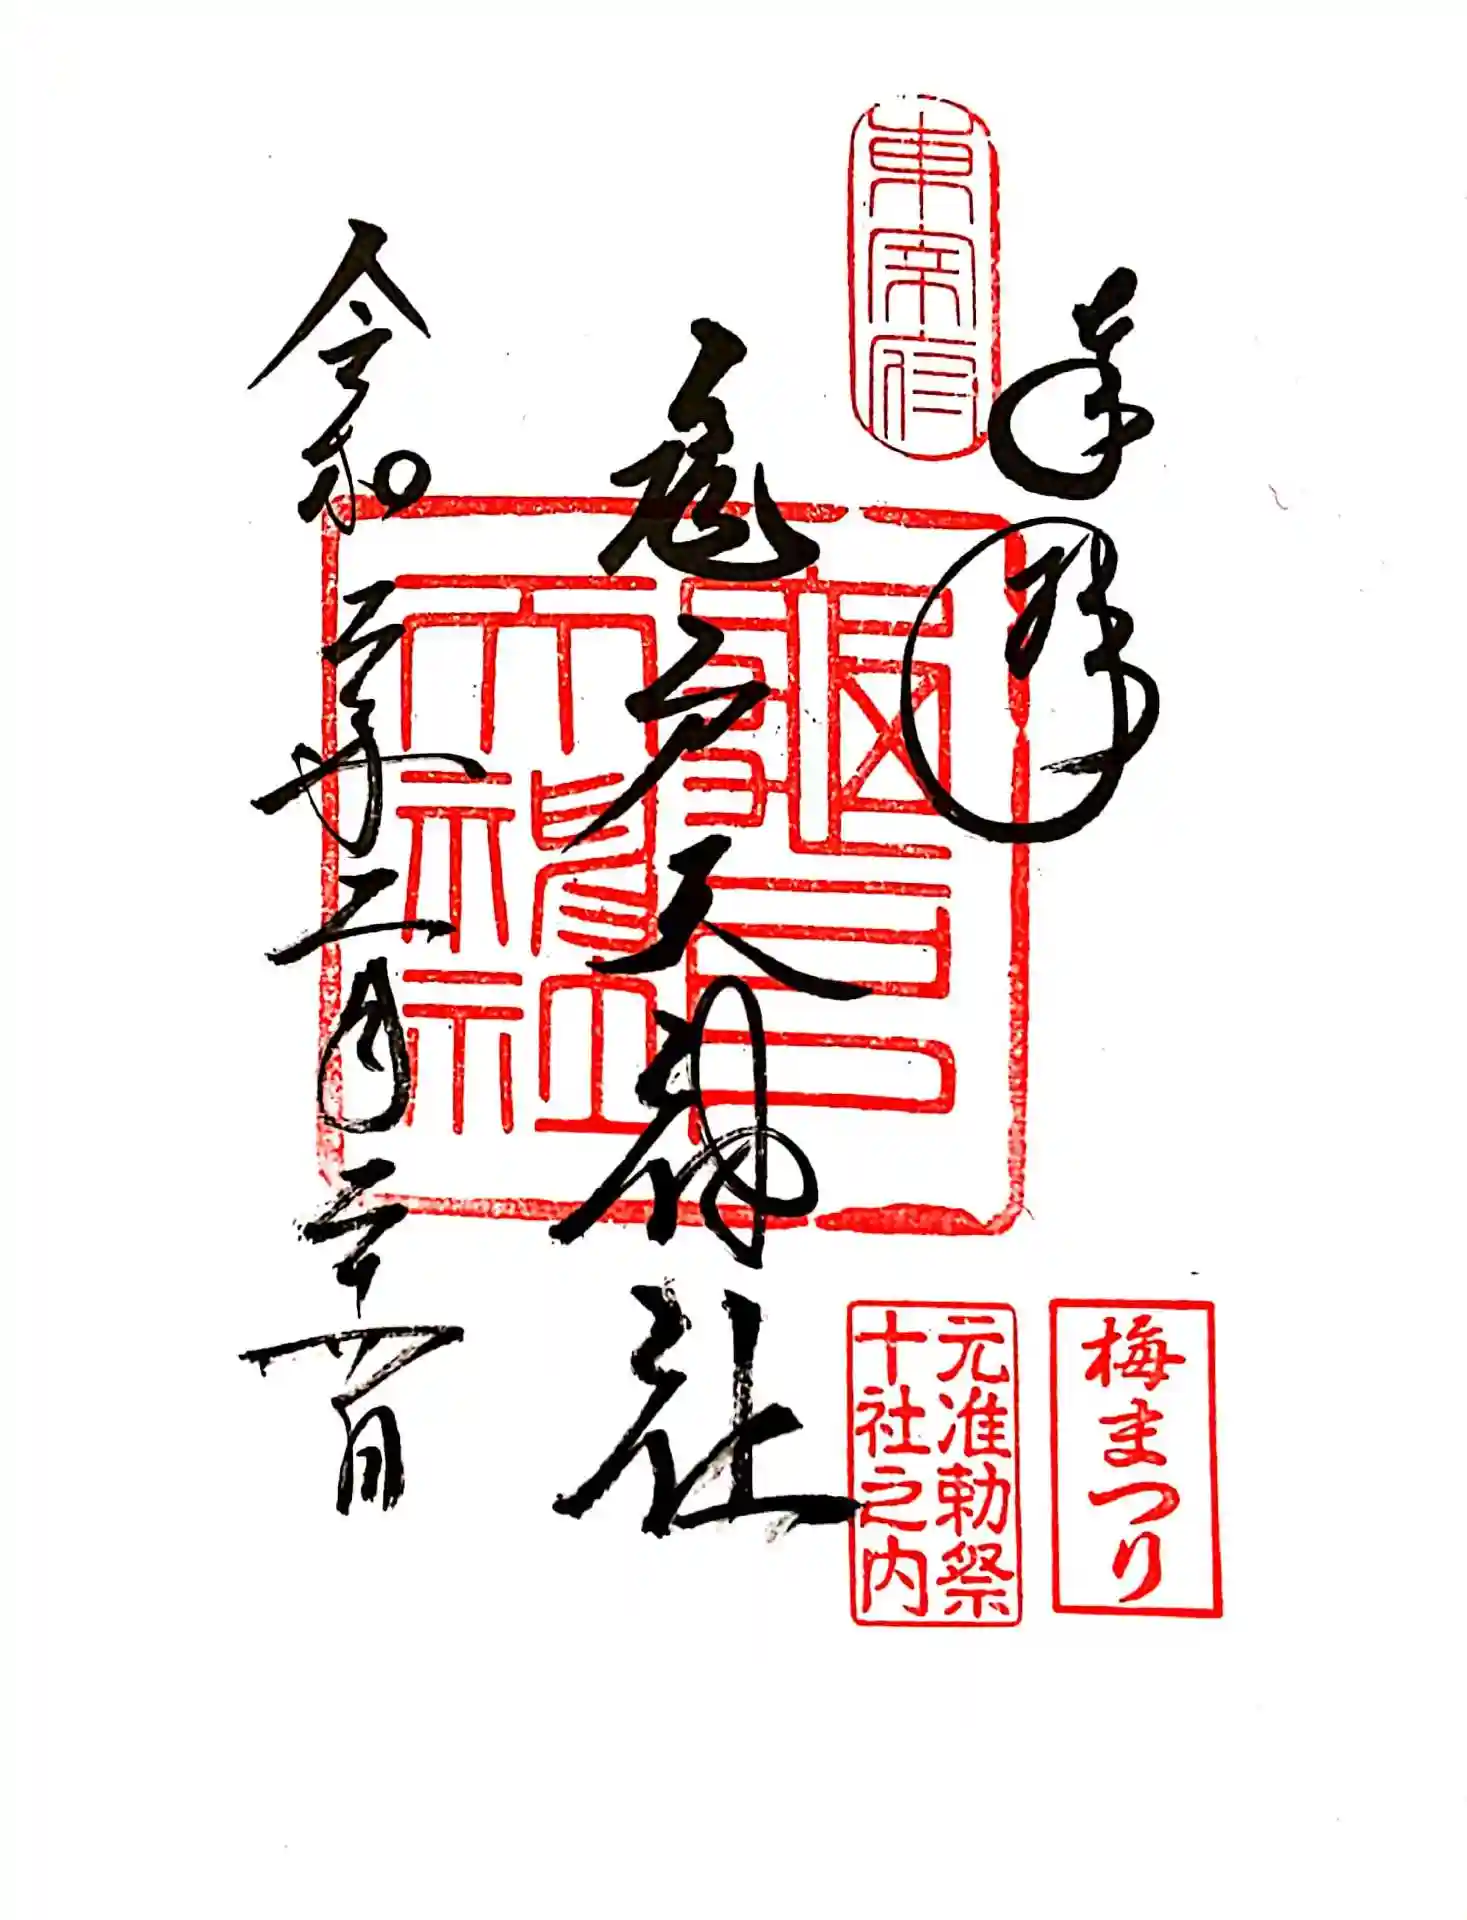 奉拝
東宰府
亀戸天神社
龜戸
天神社
令和二年二月二十日
梅まつり
元准勅祭
十社之内